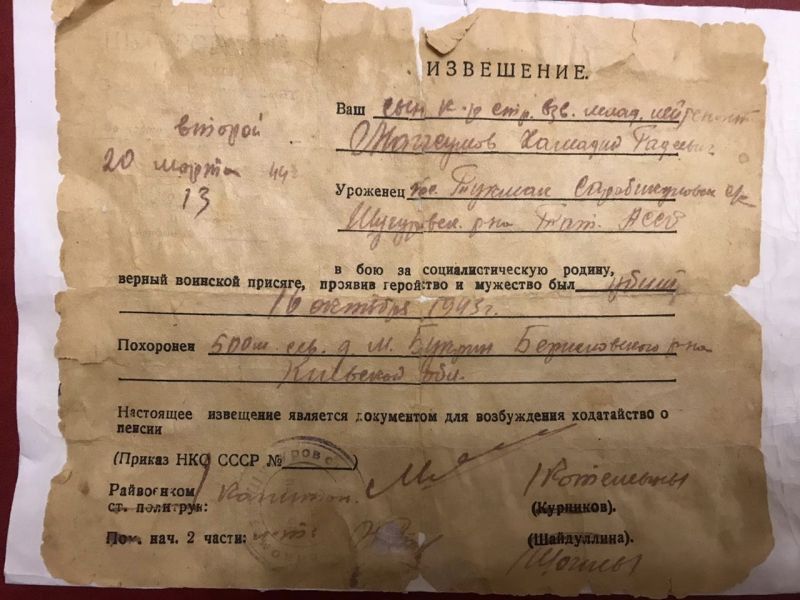 ИЗВЕШЕНИЕ.
второй
20 марта 44г
13
Ваш сын к-р стр. взв. млад. лейтенант
Уроженец Тукмак
Шугуровск. р-на Тат. АССР
в бою за социалистическую родину,
верный воинской присяге, проявив геройство и мужество был убит
16 октября 1943г.
Похоронен 500 м. сев. д. М. Букрин р-на
Киевской обл.
Настоящее извещение является документом для возбуждения ходатайство о
пенсии
(Приказ НКО СССР № )
Райвоенком капитан
ст. политрук: (Курников).
Пом. нач. 2 части: (Шайдуллина).